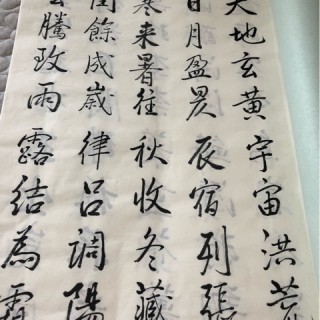 天地玄黃宇宙洪荒
日月盈昃辰宿列張
寒来暑往秋收冬藏
閏餘成歲律呂調陽
雲騰致雨露結為霜